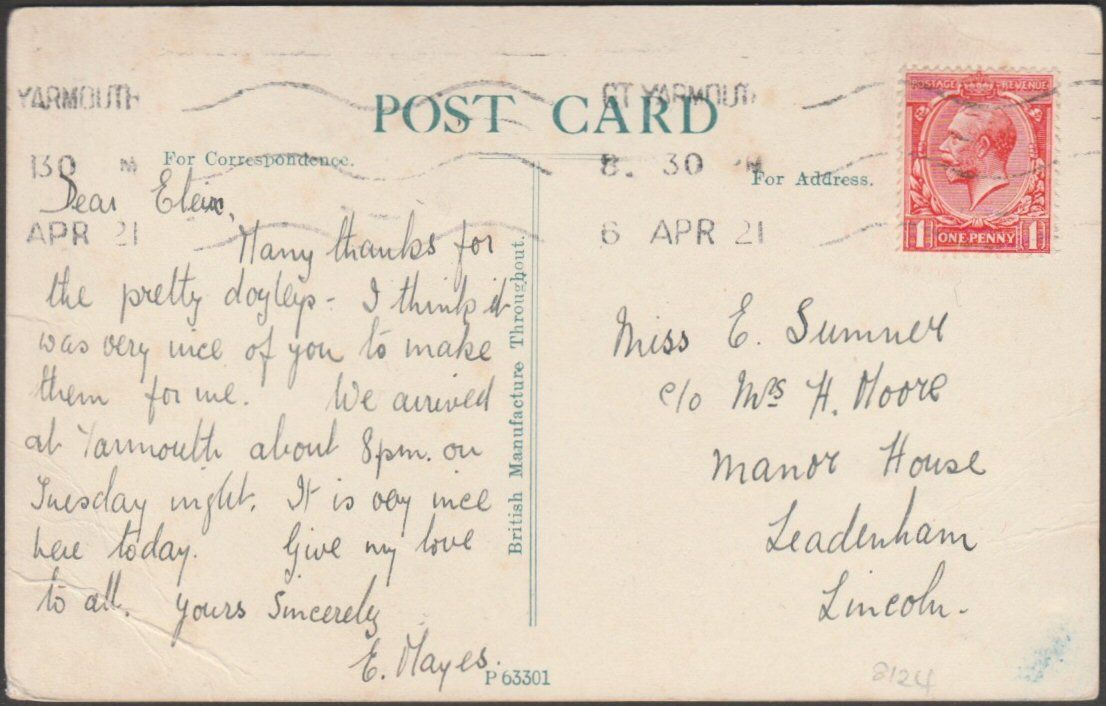 POST CARD
For Correspondence.
For Address.
YARMOUTH
130 M
APR 21
GT YARMOUT
8. 30 PM
6 APR 21
POSTAGE REVENUE
1 ONE·PENNY 1
Dear
Many thanks for
the pretty doyleys - I think it
was very nice of you to make
them for me. We arrived
at Yarmouth about 8pm. on
Tuesday night. It is very nice
here today. Give my love
to all. Yours Sincerely
E. Mayes.
British Manufacture Throughout.
Miss E. Sumner
c/o Mrs H. Moore
Manor House
Leadenham
Lincoln.
P 63301
8124